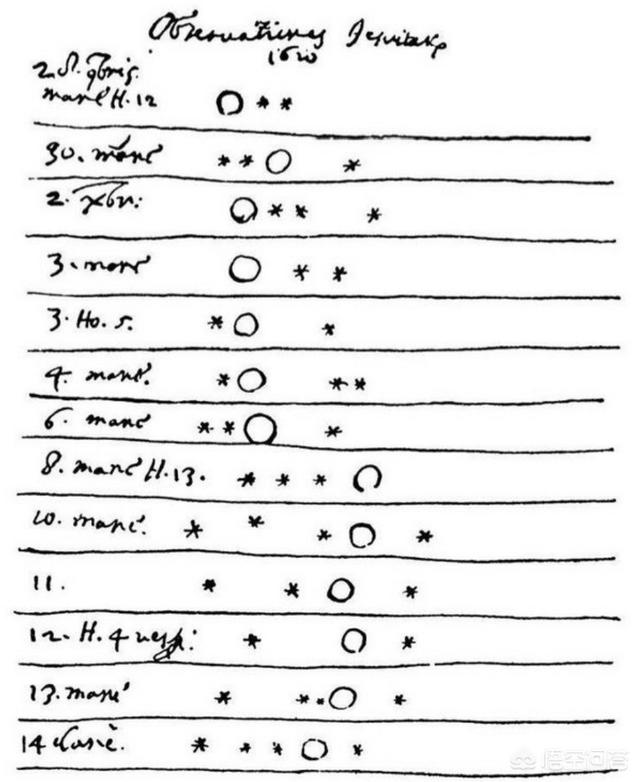 Observationes Jesuitarum
1610
2. d. 9bris.
mane H. 12
30. mane
2. xbr:
3. mane
3. Ho. 5.
4. mane.
6. mane
8. mane H. 13.
10. mane.
11.
12. H. 4 vesp:
13. mane
14 mane.
悟空问答